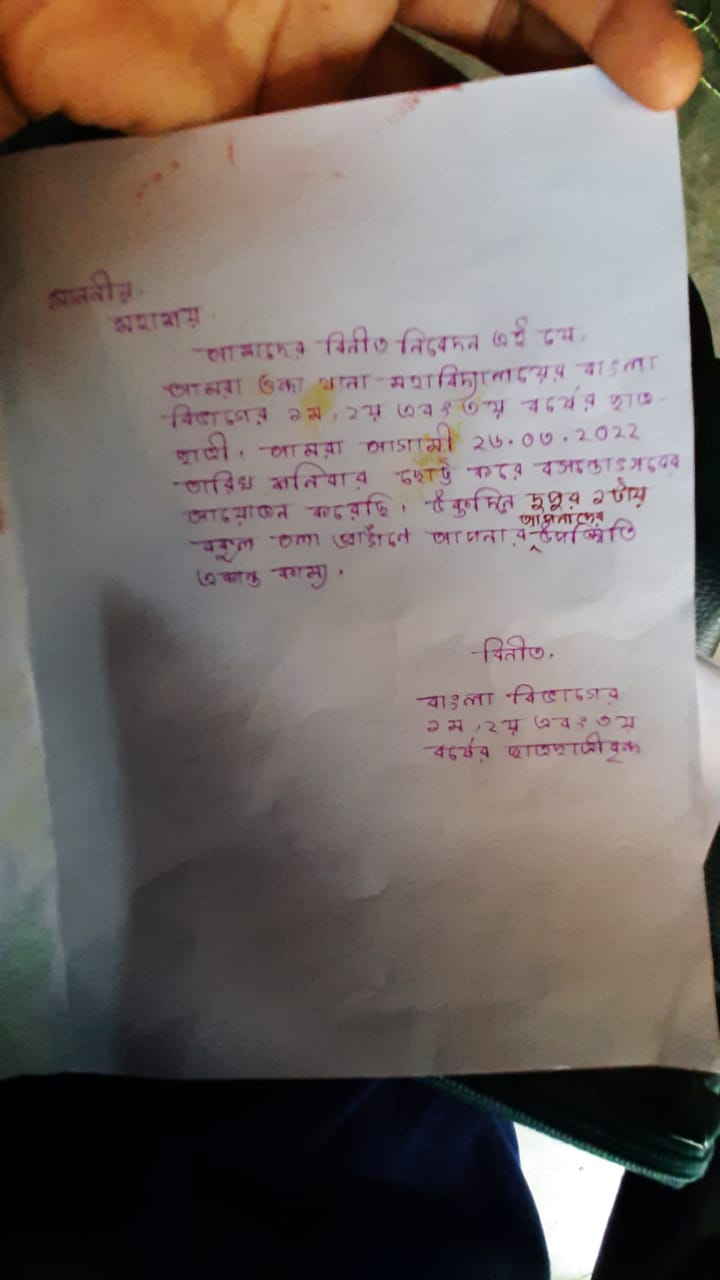 মাননীয়,
মহাশয়,
আমাদের বিনীত নিবেদন এই যে,
আমরা একা থানা মহাবিদ্যালয়ের বাংলা
বিভাগের ১ম, ২য় এবং ৩য় বর্ষের ছাত্র-
ছাত্রী। আমরা আগামী ২৬.০৩.২০২২
তারিখ শনিবার ছোট্ট করে বসন্তোৎসবের
আয়োজন করেছি। ঐ দিন দুপুর ১ টায়
বকুল তলা প্রাঙ্গনে আপনার আপনাদের উপস্থিতি
একান্ত কাম্য।
বিনীত,
বাংলা বিভাগের
১ম, ২য় এবং ৩য়
বর্ষের ছাত্রছাত্রীবৃন্দ